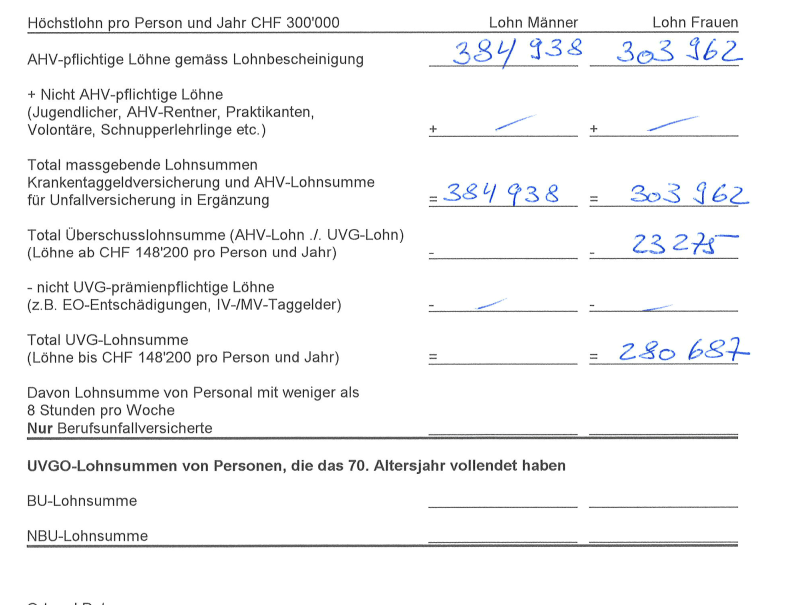 Höchstlohn pro Person und Jahr CHF 300'000 Lohn Männer Lohn Frauen
AHV-pflichtige Löhne gemäss Lohnbescheinigung 384 938 303 962
+ Nicht AHV-pflichtige Löhne
(Jugendlicher, AHV-Rentner, Praktikanten,
Volontäre, Schnupperlehrlinge etc.) + / + /
Total massgebende Lohnsummen
Krankentaggeldversicherung und AHV-Lohnsumme
für Unfallversicherung in Ergänzung = 384 938 = 303 962
Total Überschusslohnsumme (AHV-Lohn ./. UVG-Lohn)
(Löhne ab CHF 148'200 pro Person und Jahr) - - 23 275
- nicht UVG-prämienpflichtige Löhne
(z.B. EO-Entschädigungen, IV-/MV-Taggelder) - / - /
Total UVG-Lohnsumme
(Löhne bis CHF 148'200 pro Person und Jahr) = = 280 687
Davon Lohnsumme von Personal mit weniger als
8 Stunden pro Woche
Nur Berufsunfallversicherte
UVGO-Lohnsummen von Personen, die das 70. Altersjahr vollendet haben
BU-Lohnsumme
NBU-Lohnsumme